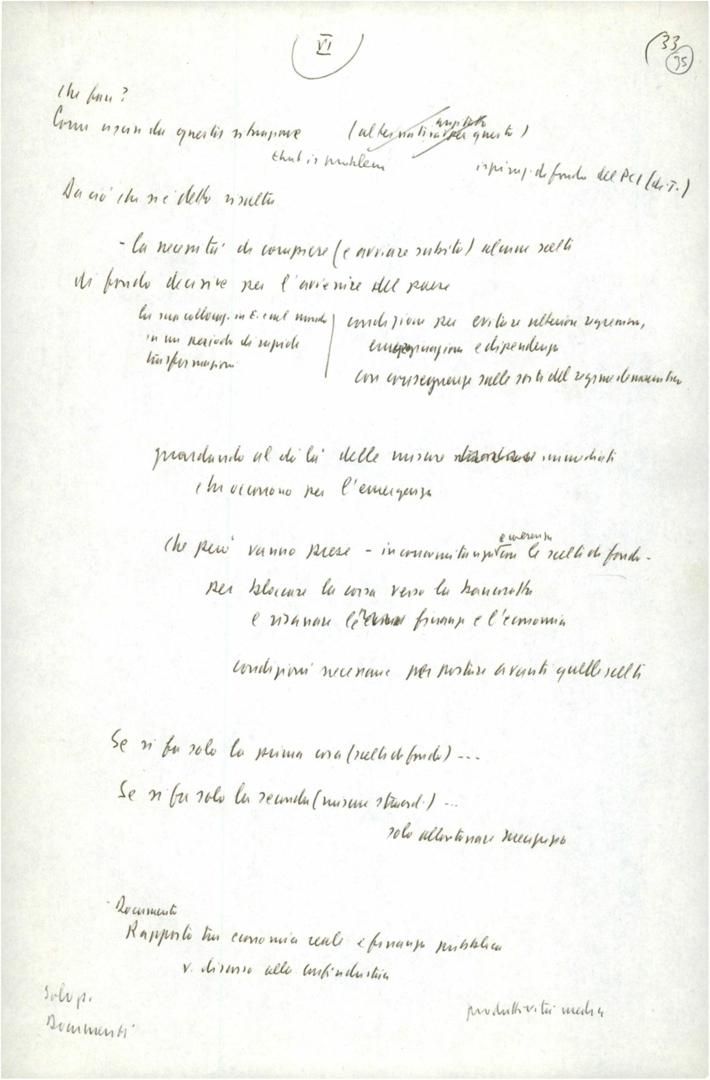 VI
33
95
Che fare?
Come uscire da questa situazione (alternativa per questo)
that is problem
ispiraz. di fondo del PCI (da T.)
Da ciò che si è detto risulta
- la necessità di compiere (e avviare subito) alcune scelte
di fondo decisive per l'avvenire del paese
la sua collocaz. in E. e nel mondo
in un periodo di rapide
trasformazioni
condizioni per evitare ulteriori regressioni,
emarginazioni e dipendenza
con conseguenze sulle sorti del regime democratico
guardando al di là delle misure immediate
che occorrono per l'emergenza
che però vanno prese - in concomitanza e coerenza con le scelte di fondo -
per bloccare la corsa verso la bancarotta
e risanare la finanza e l'economia
condizioni necessarie per portare avanti quelle scelte
Se si fa solo la prima cosa (scelte di fondo) ...
Se si fa solo la seconda (misure straord.) ...
solo allontanare
Documento
Rapporto tra economia reale e finanza pubblica
v. discorso alla confindustria
Documenti
produttività media